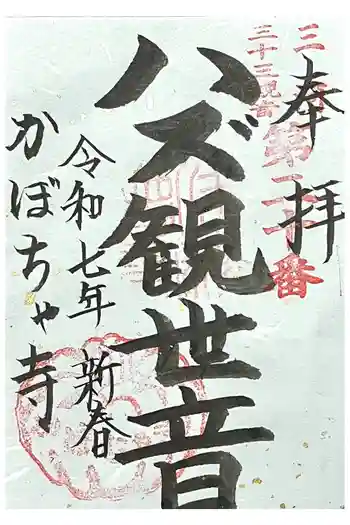 奉拝
ハズ観世音
令和七年 新春
かぼちゃ寺
三十三観音